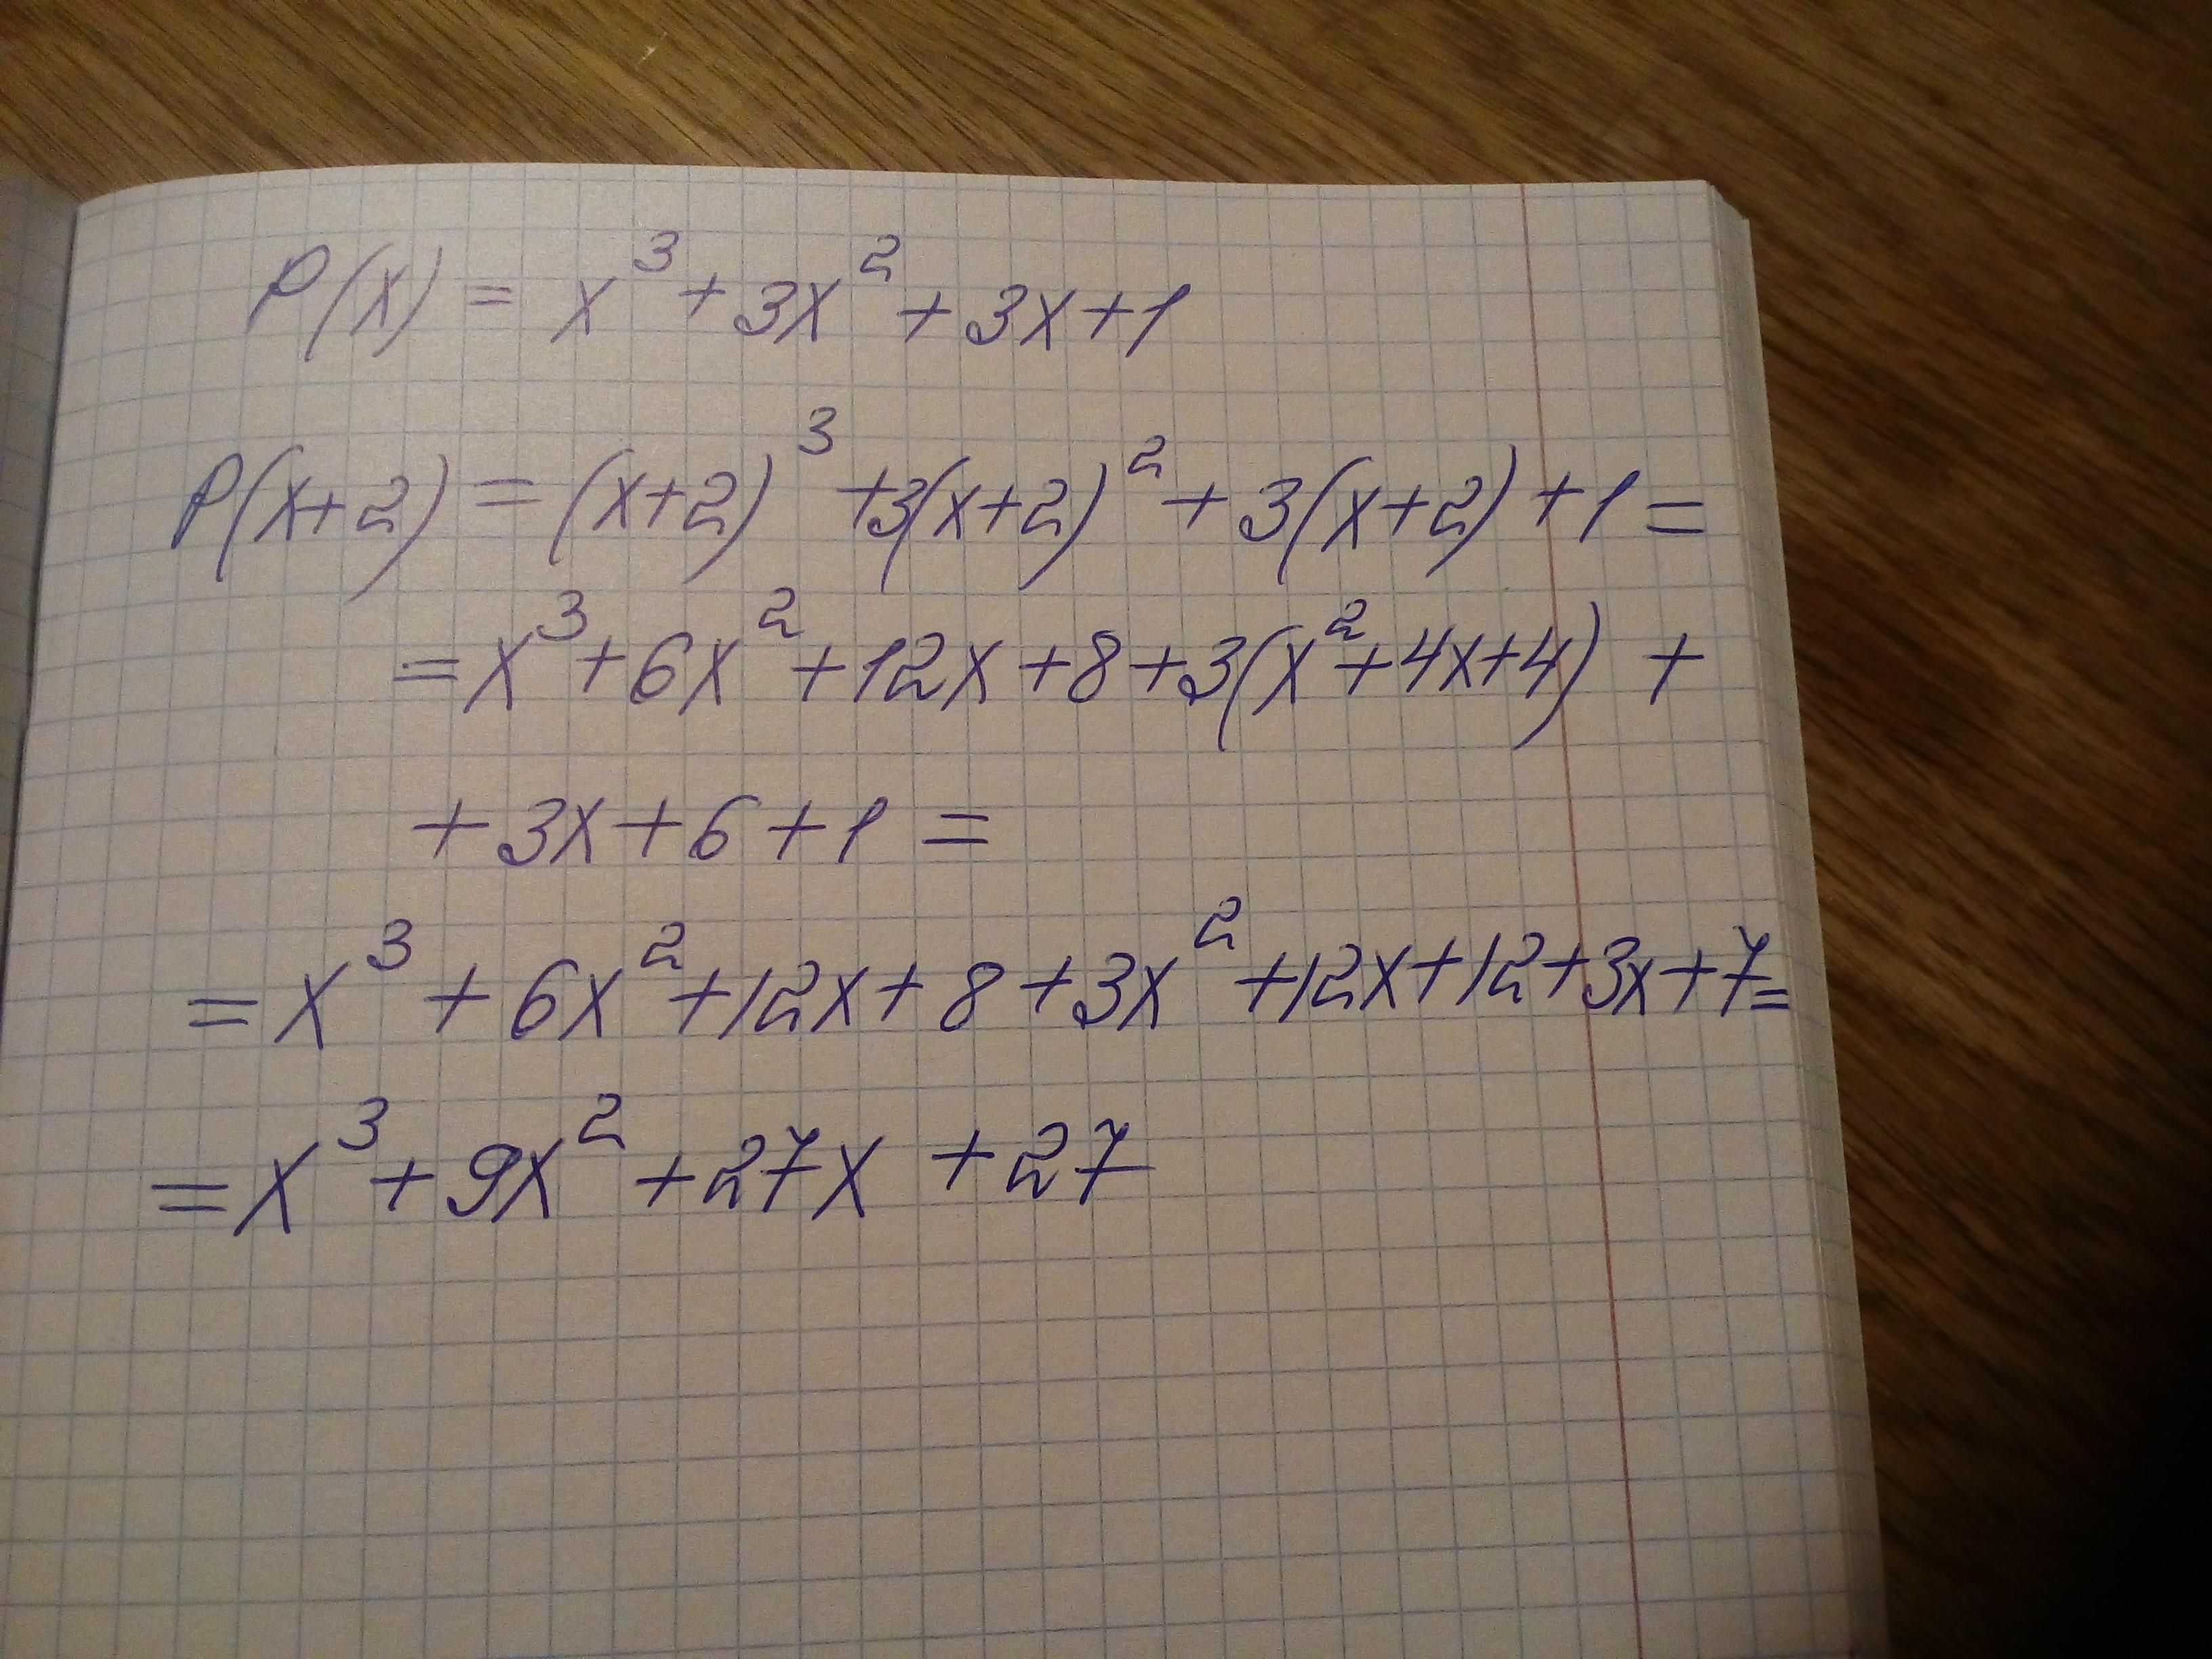 P(x) = x³ + 3x² + 3x + 1
P(x+2) = (x+2)³ + 3(x+2)² + 3(x+2) + 1 =
= x³ + 6x² + 12x + 8 + 3(x² + 4x + 4) +
+ 3x + 6 + 1 =
= x³ + 6x² + 12x + 8 + 3x² + 12x + 12 + 3x + 7 =
= x³ + 9x² + 27x + 27